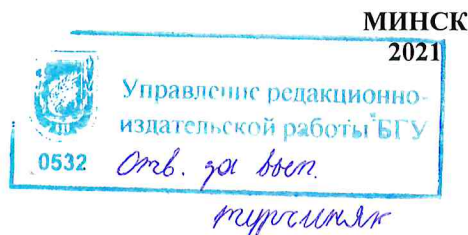 МИНСК
2021
Управление редакционно-
издательской работы БГУ
0532 Отв. за вып.